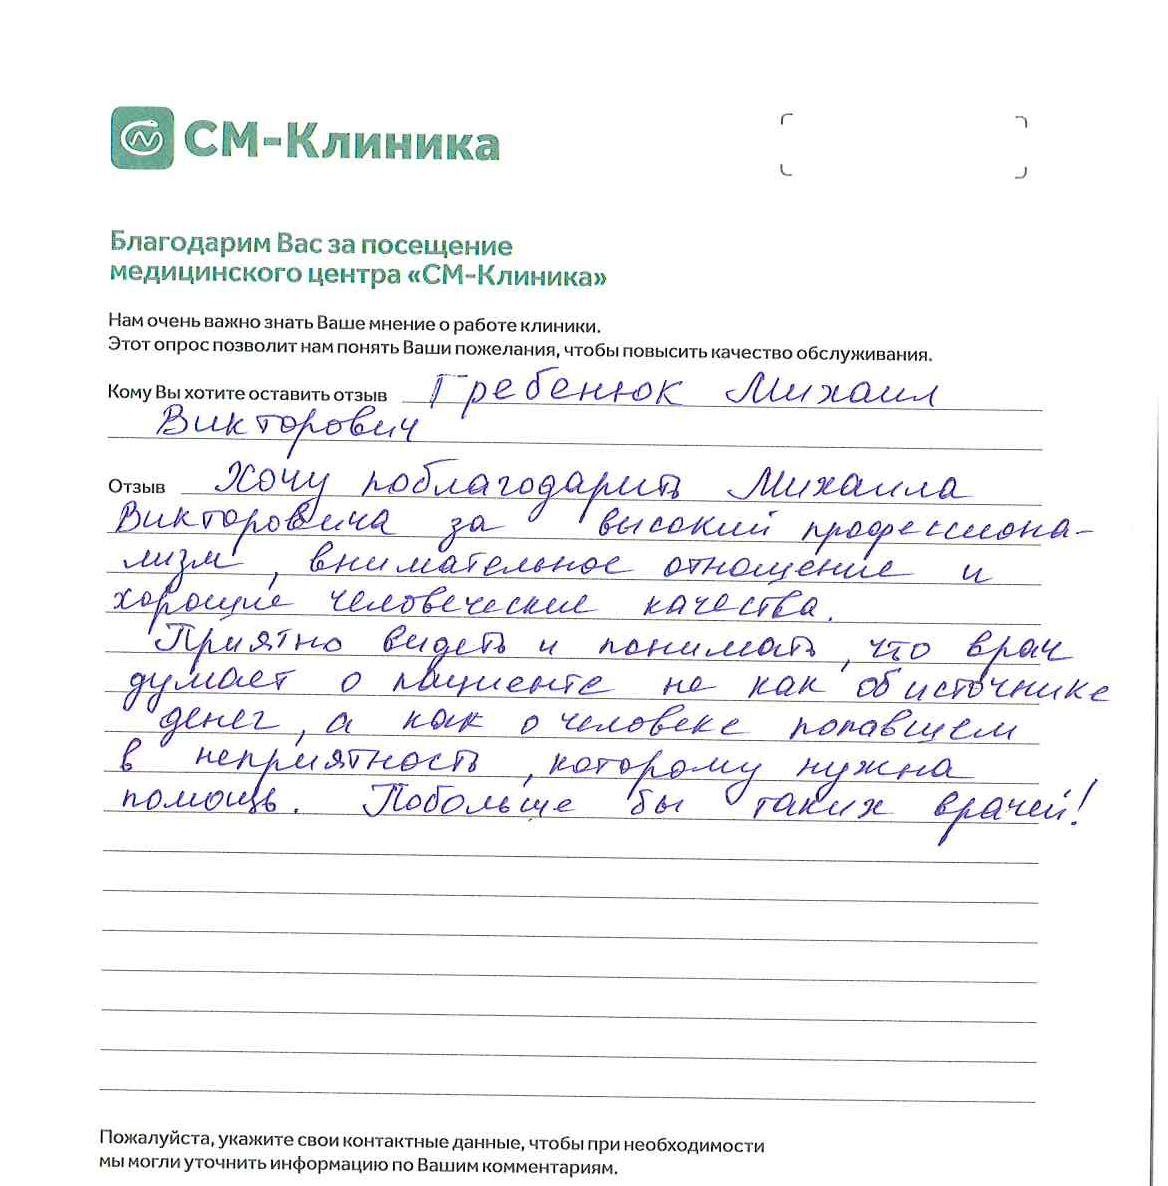 СМ-Клиника
Благодарим Вас за посещение
медицинского центра «СМ-Клиника»
Нам очень важно знать Ваше мнение о работе клиники.
Этот опрос позволит нам понять Ваши пожелания, чтобы повысить качество обслуживания.
Кому Вы хотите оставить отзыв Гребенюк Михаил
Викторович
Отзыв Хочу поблагодарить Михаила
Викторовича за высокий профессиона-
лизм, внимательное отношение и
хорошие человеческие качества.
Приятно видеть и понимать, что врач
думает о пациенте не как об источнике
денег, а как о человеке попавшем
в неприятность, которому нужна
помощь. Побольше бы таких врачей!
Пожалуйста, укажите свои контактные данные, чтобы при необходимости
мы могли уточнить информацию по Вашим комментариям.